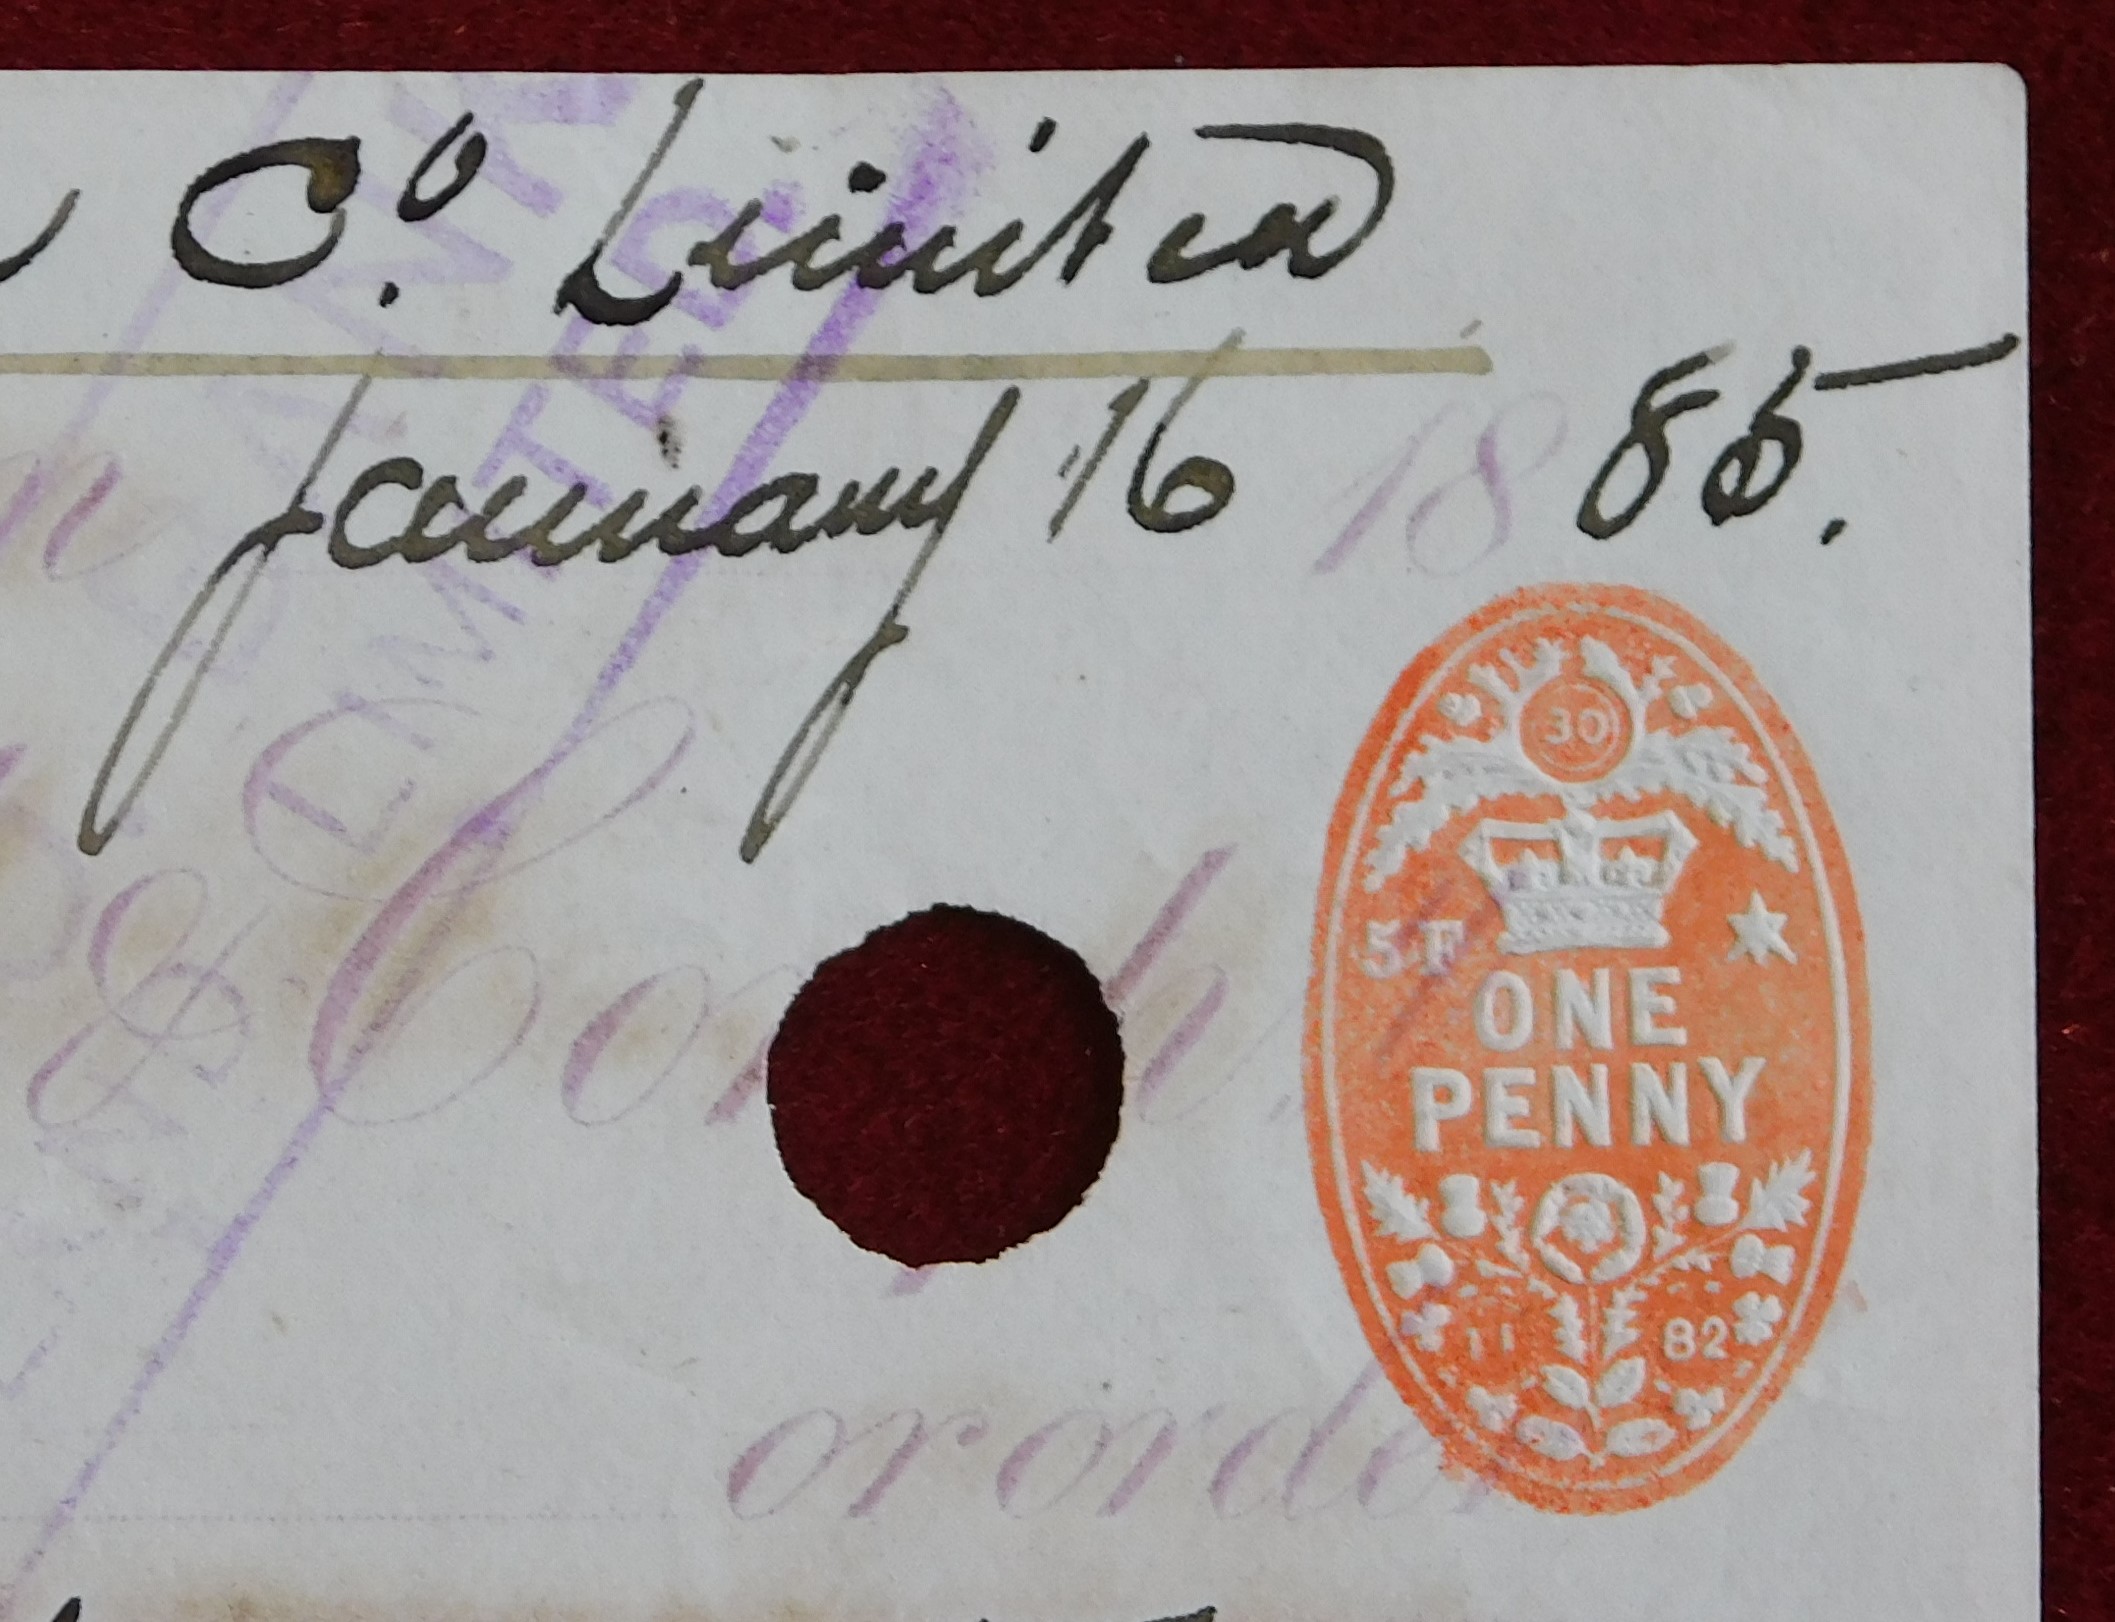 Co. Limited
January 16 1885.
30
& Co
5F
ONE
PENNY
11 82
or order
LIMITED